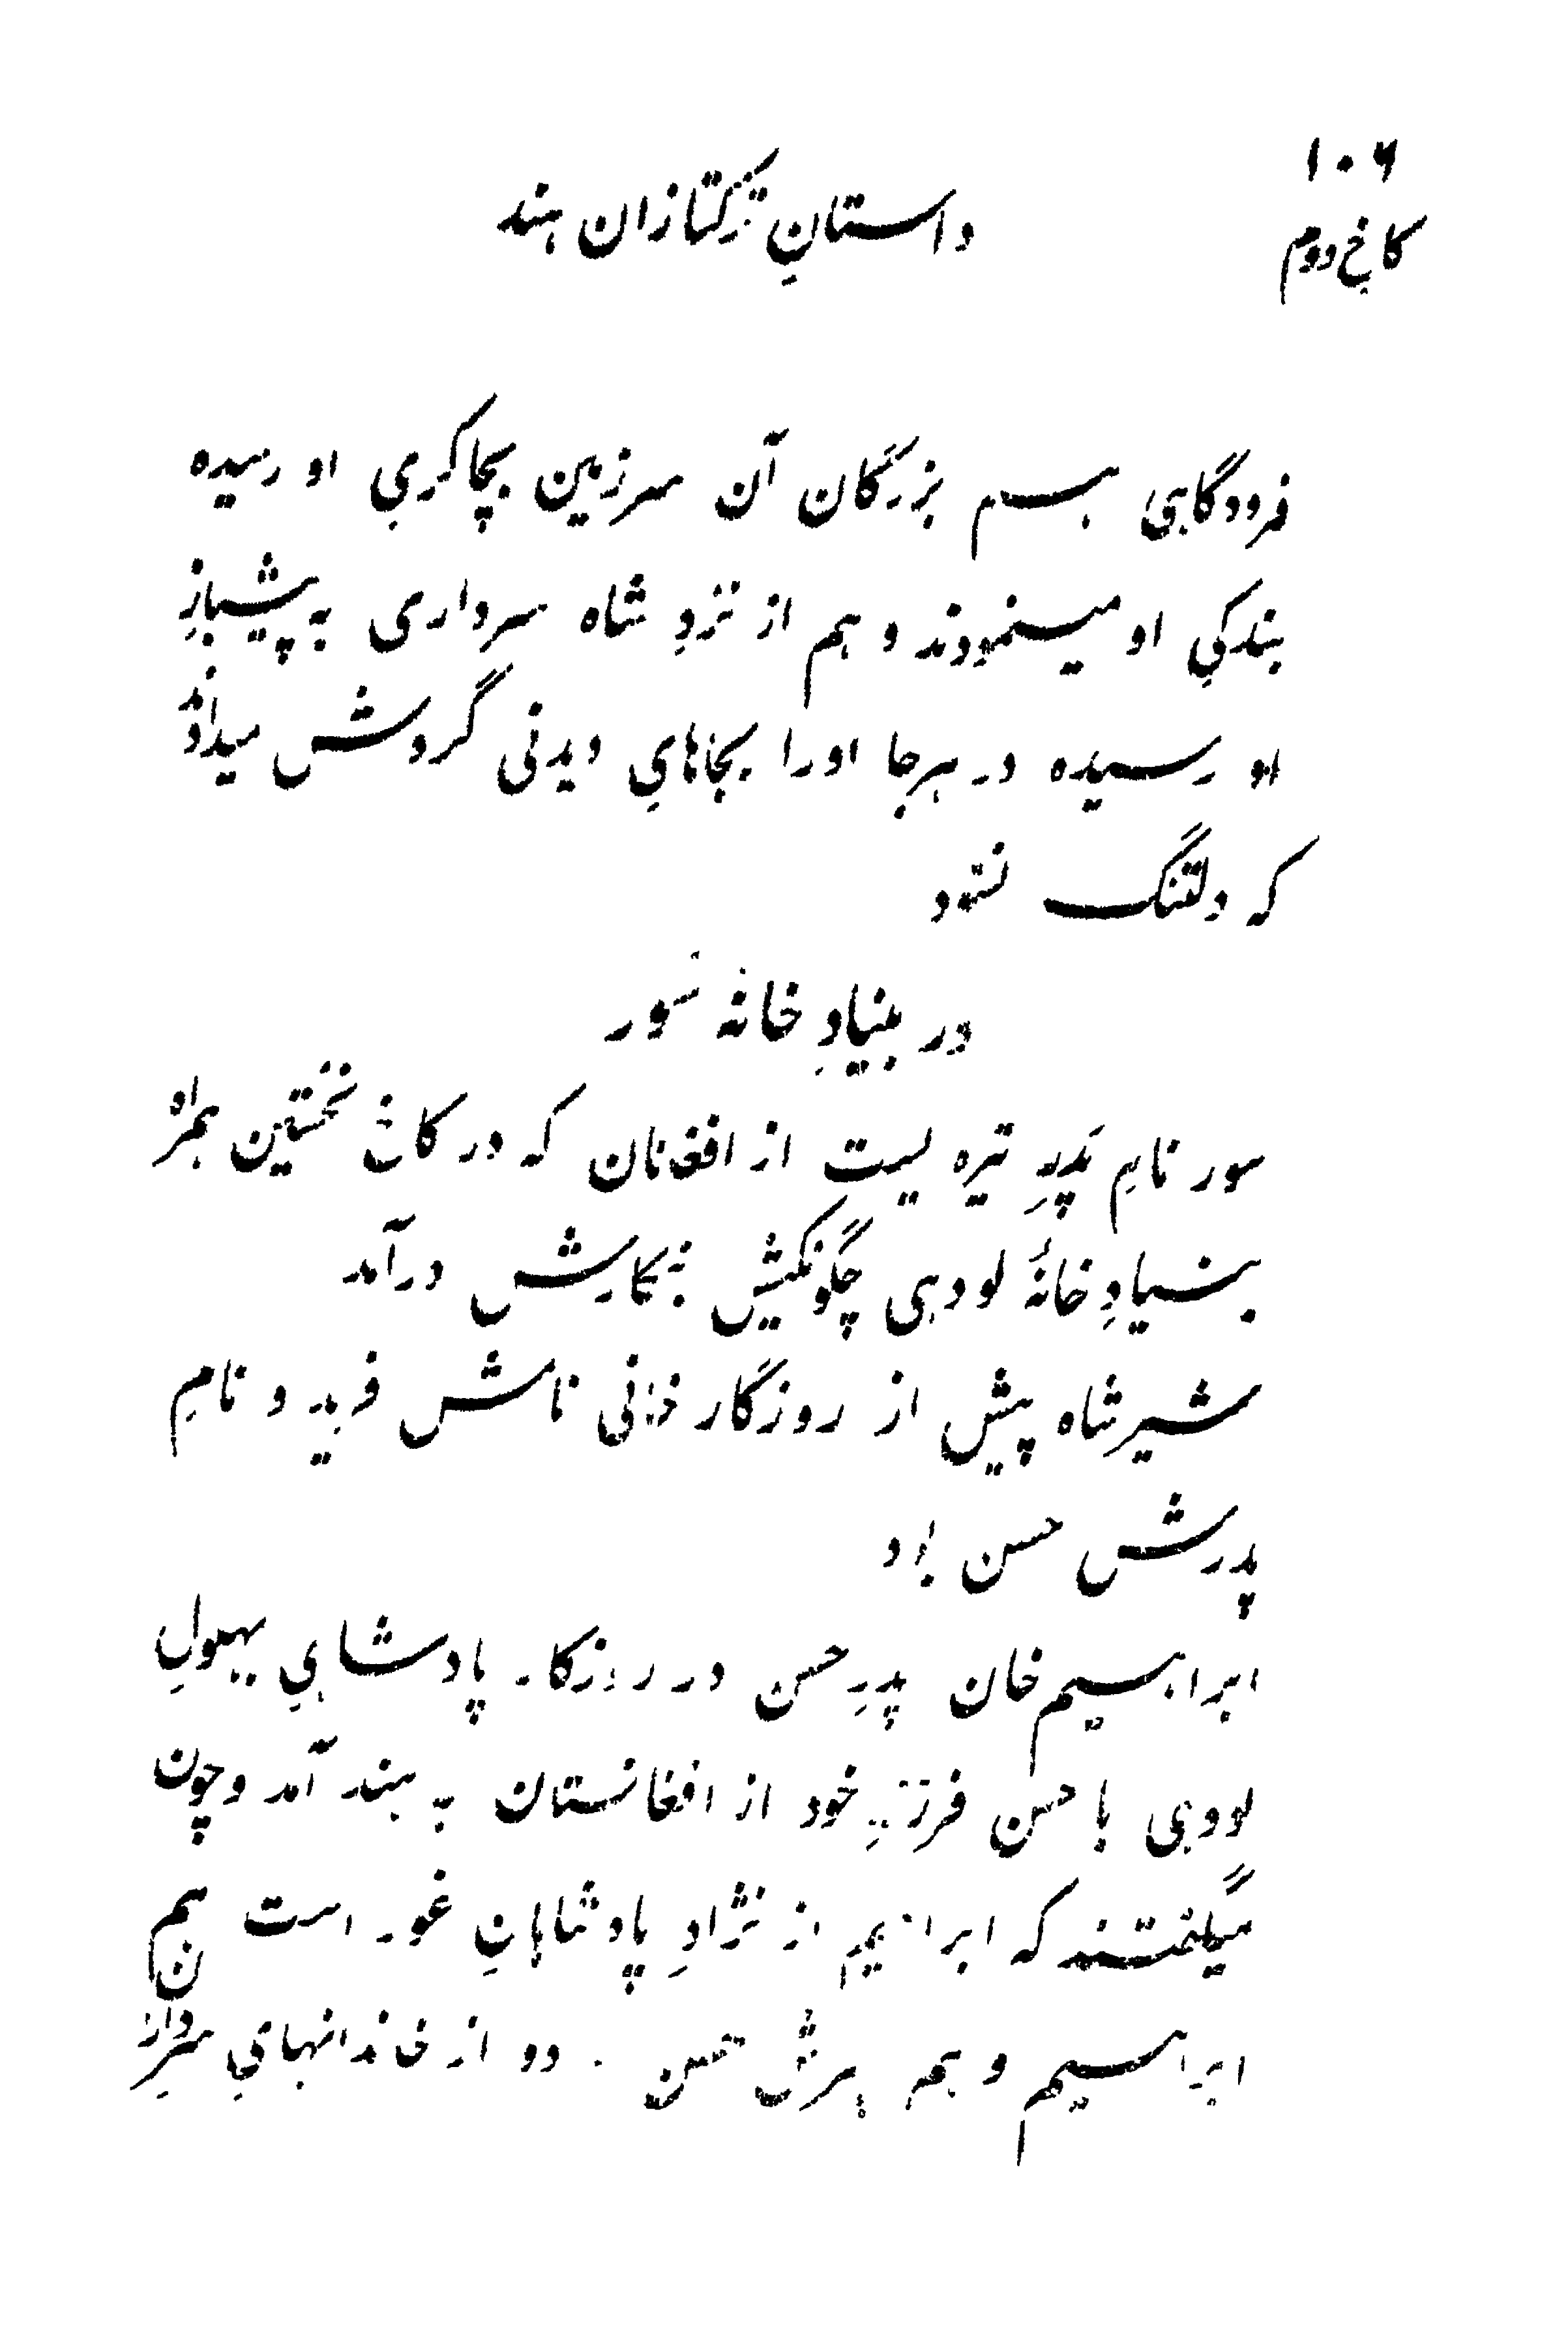 ۱۰۶
داستانِ ترکتازان هند
کاخ دوم
فرودگاهی هم بزرگان آن سرزمین بچاکریِ او رسیده
بندکیِ او مینمودند و هم از نزدِ شاه سرداری به پیشبازِ
او رسیده در هرجا اورا بجاهایِ دیدنی گردش میدادند
که دلتنگ نشود
در بنیادِ خانه سور
سور نامِ پدرِ تیره ایست از افغانان که در کاخ نخستین همراه
بنیادِ خانهٔ لودهی چگونگیش به نگارش درآمد
شیرشاه پیش از روزگار خانی نامش فرید و نامِ
پدرش حسن بود
ابراهیم خان پدرِ حسن در روزگار پادشاهیِ بهلولِ
لودهی با حسن فرزندِ خود از افغانستان به هند آمد و چون
میگفتند که ابراهیم از نژادِ پادشاهانِ غور است هم
ابراهیم و هم پسرش حسن دو از خاندانهایِ سردارانِ